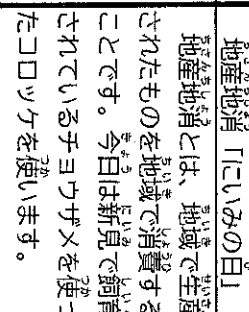 地産地消「にいみの日」
地産地消とは、地域で生産
されたものを地域で消費する
ことです。今日は新見で飼育
されているチョウザメを使っ
たコロッケを使います。